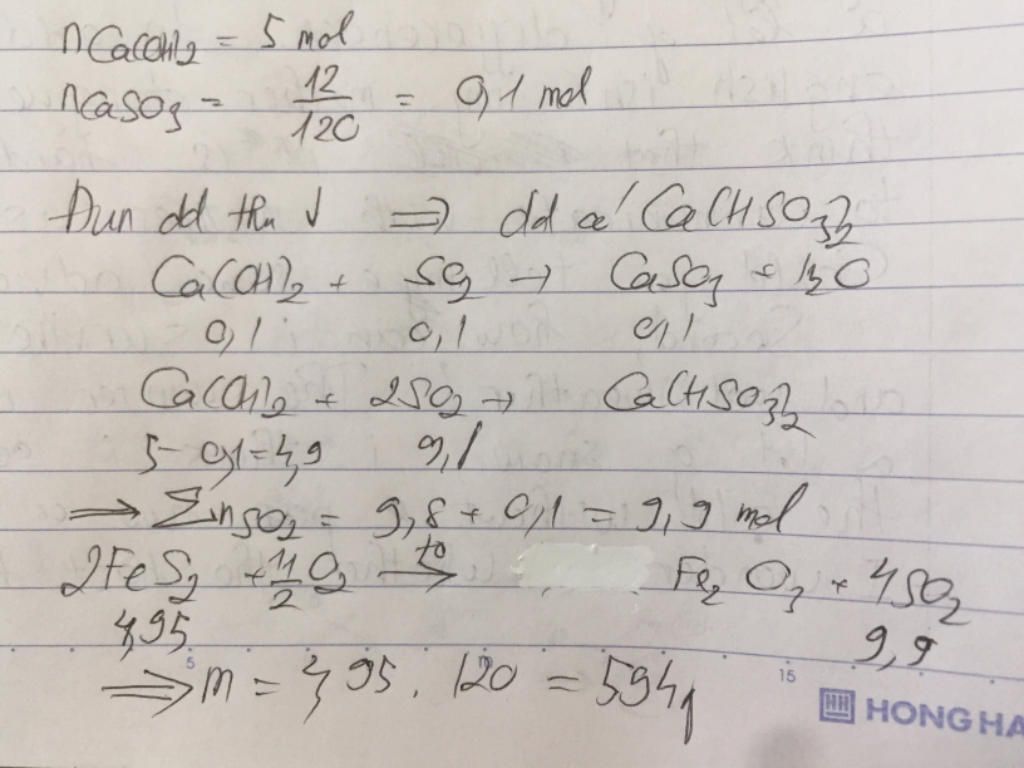 nCa(OH)2 = 5 mol
nCaSO3 = 12/120 = 0,1 mol
Đun dd thu ↓ ⇒ dd có Ca(HSO3)2
Ca(OH)2 + SO2 → CaSO3 + H2O
0,1 0,1 0,1
Ca(OH)2 + 2SO2 → Ca(HSO3)2
5-0,1=4,9 9,8
⇒ ΣnSO2 = 9,8 + 0,1 = 9,9 mol
2FeS2 + 11/2 O2 →(t°) Fe2O3 + 4SO2
4,95 9,9
5 10 15
⇒ m = 4,95 . 120 = 594g
HH HONG HA